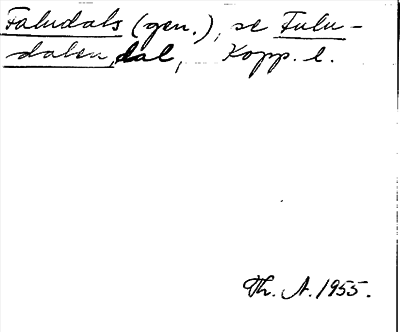 Faludals (gen.), se Fulu-
dalen, dal, Kopp. l.
Th. A. 1955.